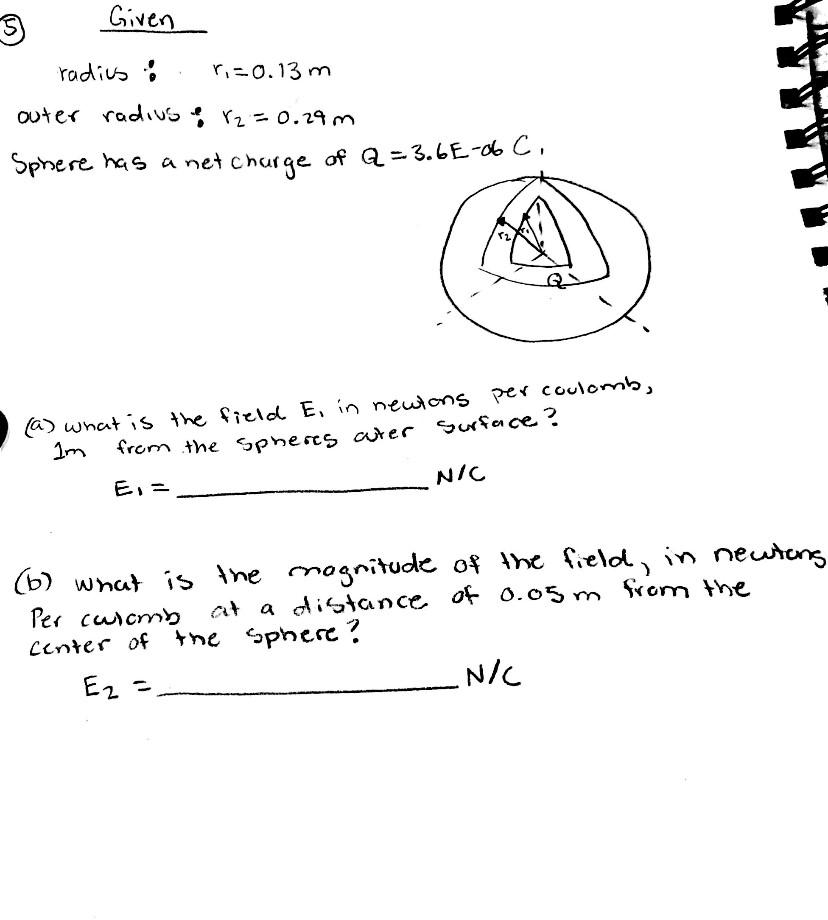 5
Given
radius : r₁=0.13 m
outer radius : r₂ = 0.29 m
Sphere has a net charge of Q = 3.6E-06 C.
r₂ r₁
Q
(a) what is the field E, in newtons per coulomb,
1m from the spheres outer surface?
E₁ = ________ N/C
(b) what is the magnitude of the field, in newtons
Per coulomb at a distance of 0.05 m from the
center of the sphere?
E₂ = ________ N/C